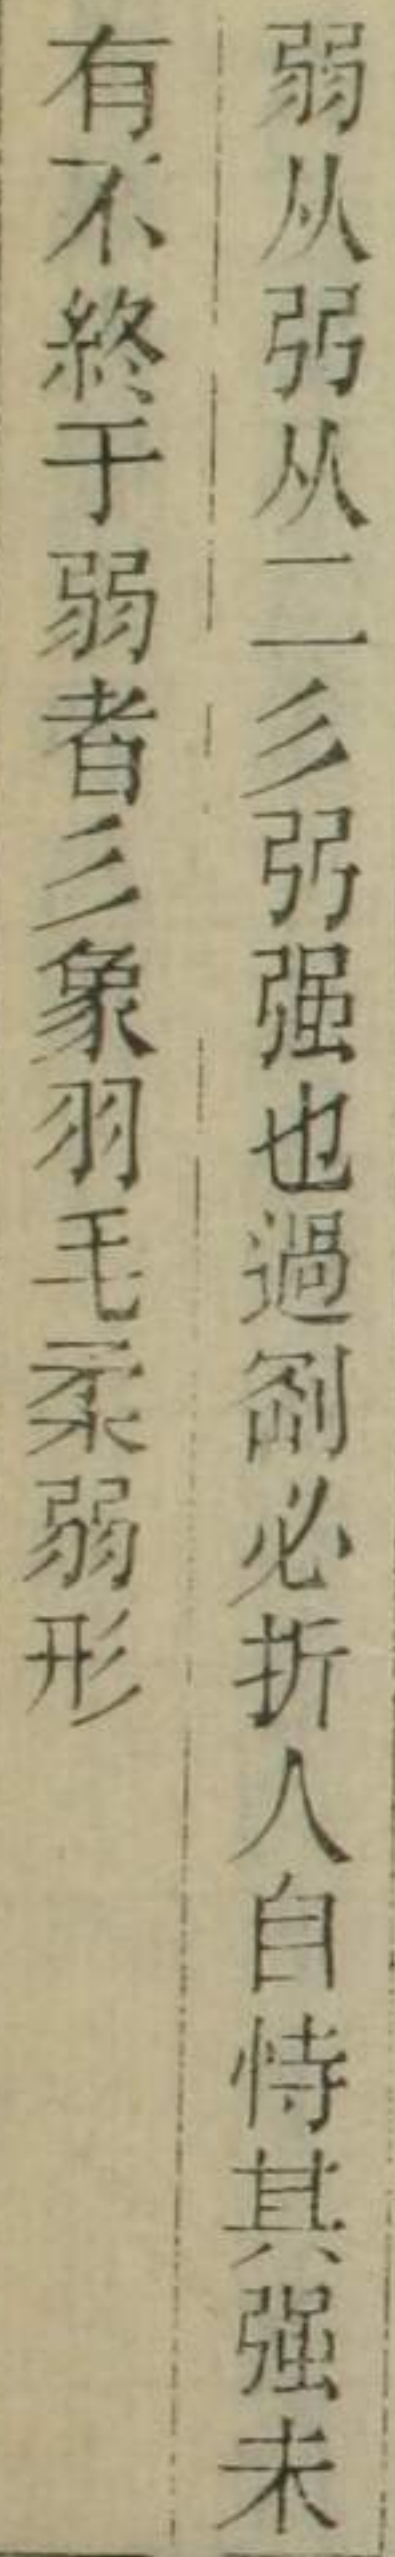 弱从弜从二彡弜强也過剛必折人自恃其强未
有不終于弱者彡象羽毛柔弱形